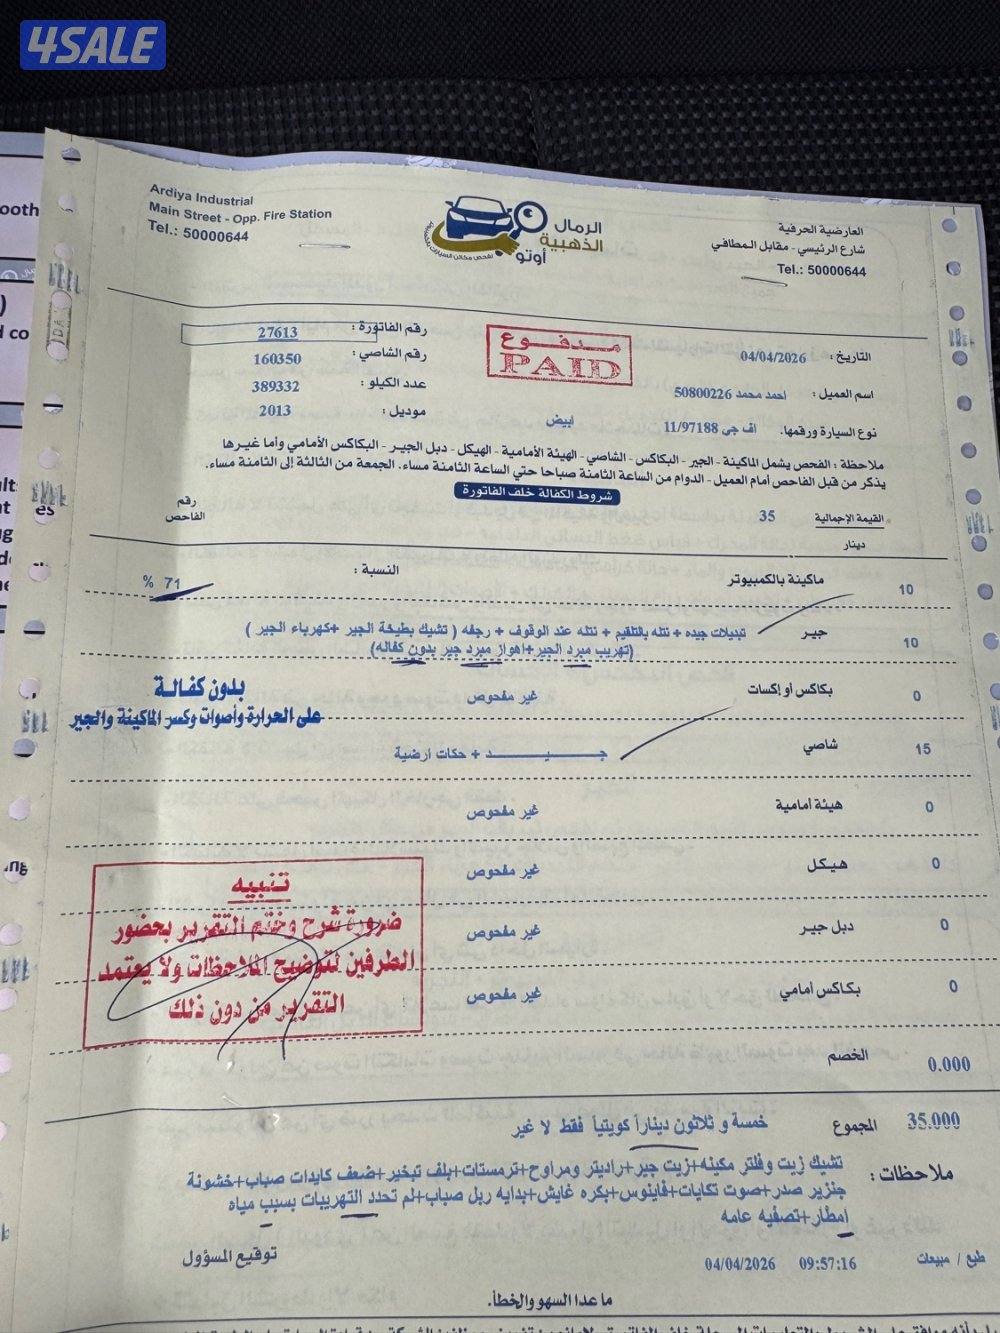 4SALE
Ardiya Industrial
Main Street - Opp. Fire Station
Tel.: 50000644
الرمال
الذهبية
أوتو
العارضية الحرفية
شارع الرئيسي - مقابل المطافي
Tel.: 50000644
رقم الفاتورة : 27613
رقم الشاصي : 160350
عدد الكيلو : 389332
موديل : 2013
مدفوع
PAID
التاريخ : 04/04/2026
اسم العميل : احمد محمد 50800226
نوع السيارة ورقمها. اف جى 11/97188 ابيض
ملاحظة : الفحص يشمل الماكينة - الجير - البكاكس - الشاصي - الهيئة الأمامية - الهيكل - دبل الجير - البكاكس الأمامي وأما غيرها
يذكر من قبل الفاحص أمام العميل - الدوام من الساعة الثامنة صباحا حتي الساعة الثامنة مساء. الجمعة من الثالثة إلى الثامنة مساء.
شروط الكفالة خلف الفاتورة
القيمة الإجمالية 35
رقم
الفاحص
دينار
10 ماكينة بالكمبيوتر النسبة : 71 %
10 جير تبديلات جيده + نتله بالتلقيم + نتله عند الوقوف + رجفه ( تشيك بطيخة الجير +كهرباء الجير )
(تهريب مبرد الجير+اهواز مبرد جير بدون كفاله)
0 بكاكس أو إكسات غير مفحوص
بدون كفالة
على الحرارة وأصوات وكسر الماكينة والجير
15 شاصي جـــيـــد + حكات ارضية
0 هيئة أمامية غير مفحوص
0 هيكل غير مفحوص
0 دبل جير غير مفحوص
0 بكاكس امامي غير مفحوص
تنبيه
ضرورة شرح وختم التقرير بحضور
الطرفين لتوضيح الملاحظات ولا يعتمد
التقرير من دون ذلك
الخصم 0.000
35.000 المجموع خمسة و ثلاثون ديناراً كويتياً فقط لا غير
ملاحظات : تشيك زيت وفلتر مكينه+زيت جير+راديتر ومراوح+ترمستات+بلف تبخير+ضعف كايدات صباب+خشونة
جنزير صدر+صوت تكايات+فاينوس+بكره غايش+بدايه ربل صباب+لم تحدد التهريبات بسبب مياه
امطار+تصفيه عامه
طبع / مبيعات 09:57:16 04/04/2026
توقيع المسؤول
ما عدا السهو والخطأ.